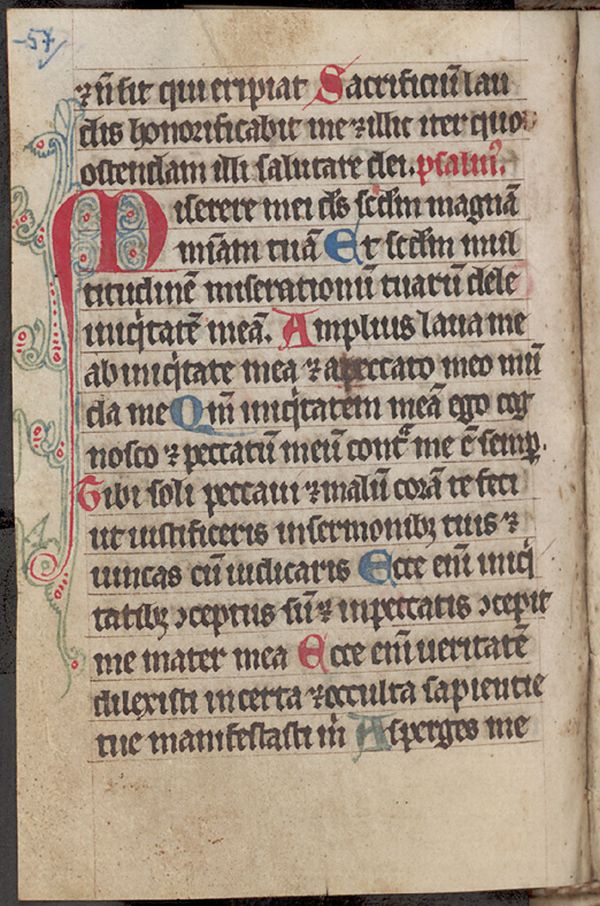 57
⁊ nō sit qui eripiat Sacrificiū lau
dis honorificabit me ⁊ illic iter quo
ostendam illi salutare dei. psalmꝰ.
Miserere mei ds̄ scd̄m magnā
mīam tuā Et scd̄m mul
titudinē miserationū tuarū dele
iniq̇tatē meā. Amplius laua me
ab iniq̇tate mea ⁊ a peccato meo mū
da me Qm̄ iniq̇tatem meā ego cog
nosco ⁊ peccatū meū cont̃ me ē semꝑ.
Tibi soli peccaui ⁊ malū corā te feci
ut iustificeris in sermonibꝫ tuis ⁊
uincas cū iudicaris Ecce eni͂ iniq̇
tatibꝫ ↄceptus sū ⁊ in peccatis ↄcepit
me mater mea Ecce eni͂ ueritatē
dilexisti incerta ⁊ occulta sapientie
tue manifestasti ṁ Asperges me